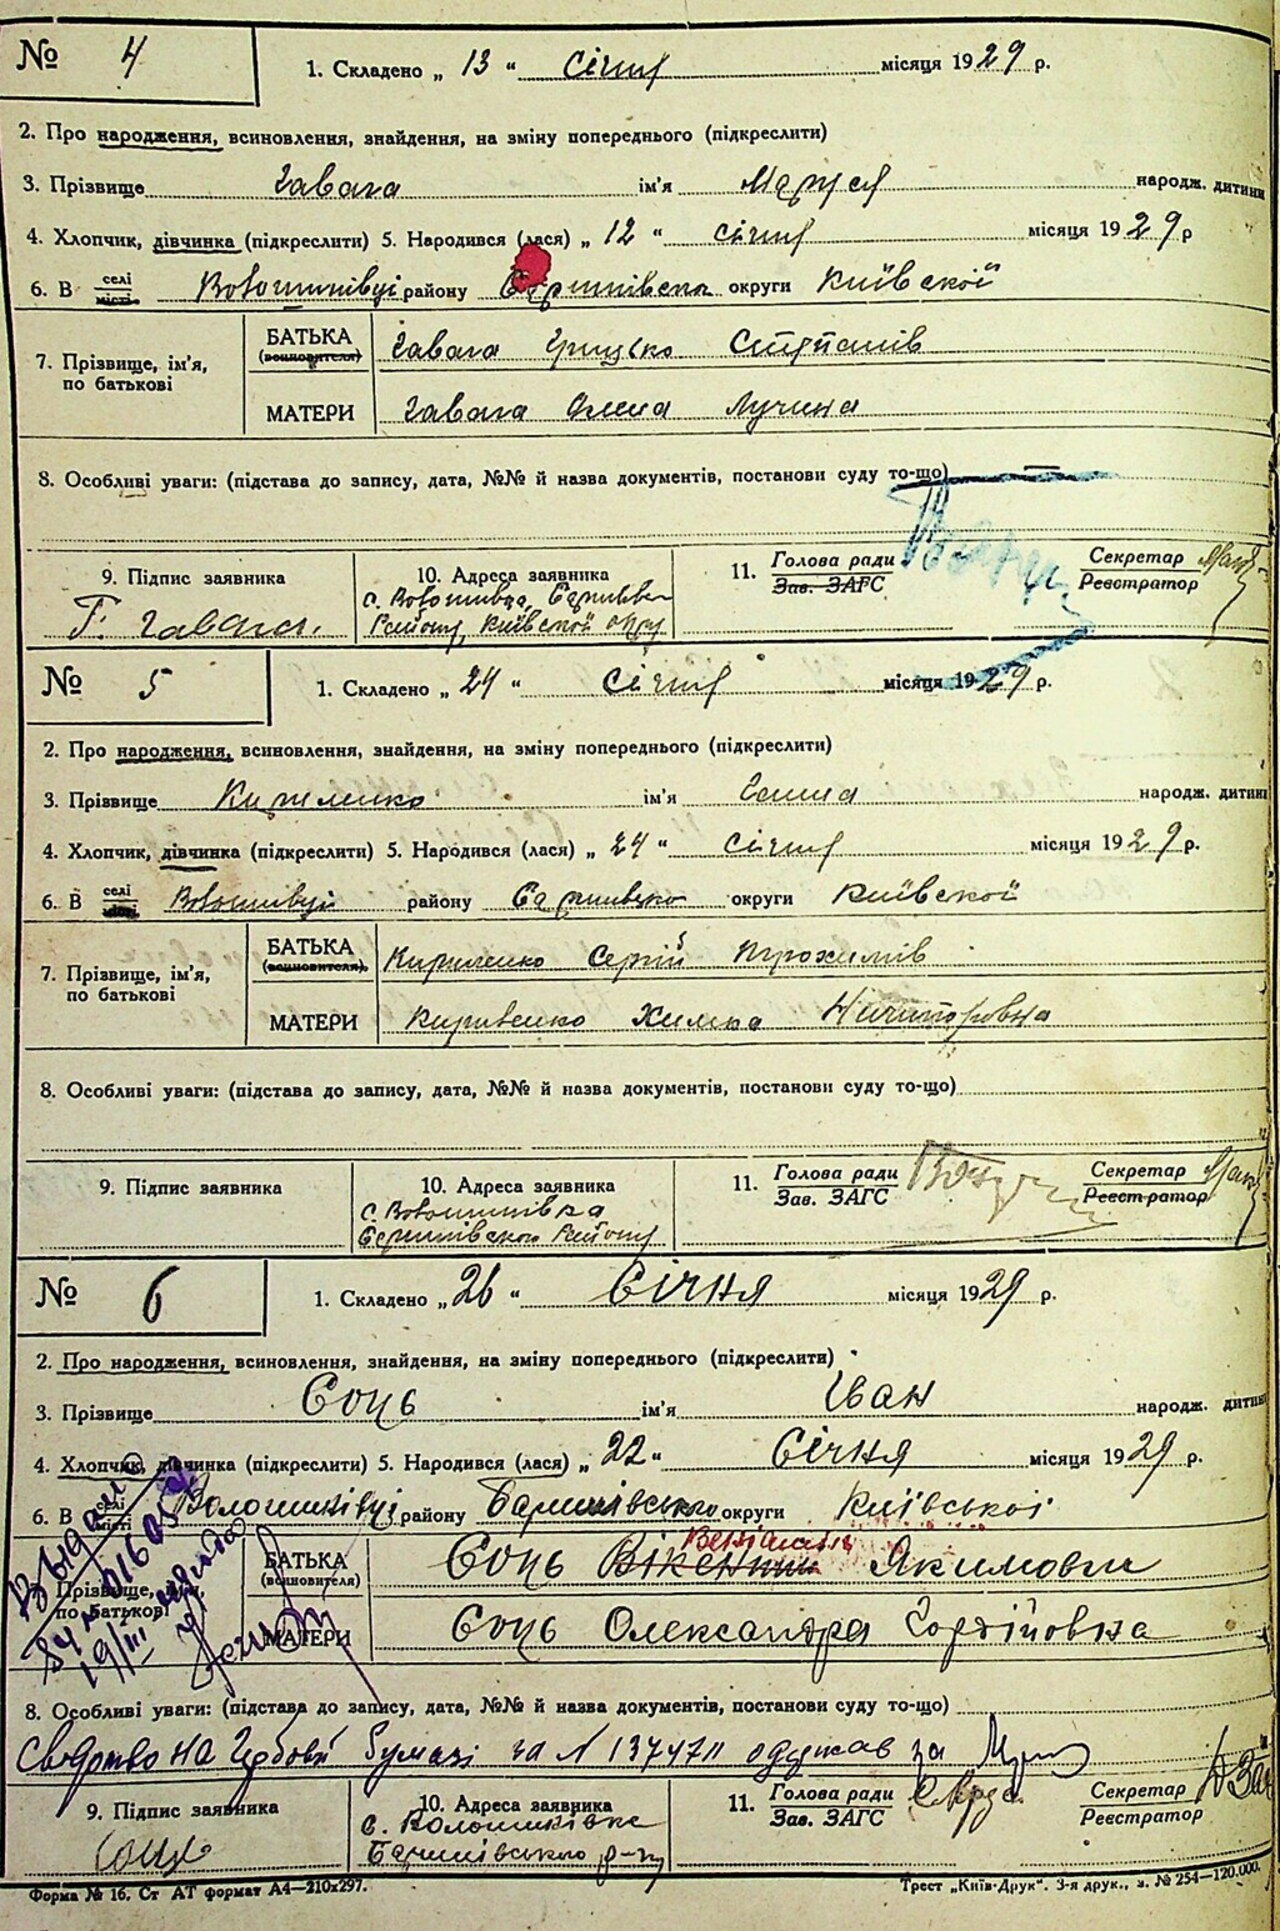 № 4
1. Складено „ 13 “ січня місяця 1929 р.
2. Про народження, всиновлення, знайдення, на зміну попереднього (підкреслити)
3. Прізвище Гавага ім'я Маруся народж. дитини
4. Хлопчик, дівчинка (підкреслити) 5. Народився (лася) „ 12 “ січня місяця 1929 р
6. В селі місті Волошинівці району округи Київської
7. Прізвище, ім'я, по батькові
БАТЬКА (всиновителя) Гавага Грицько Степанів
МАТЕРИ Гавага Олена Лучина
8. Особливі уваги: (підстава до запису, дата, №№ й назва документів, постанови суду то-що)
9. Підпис заявника
10. Адреса заявника
11. Голова ради Зав. ЗАГС
Секретар Реєстратор
с. Волошинівка,
Району, Київської окру
Г. Гавага.
№ 5
1. Складено „ 24 “ січня місяця 1929 р.
2. Про народження, всиновлення, знайдення, на зміну попереднього (підкреслити)
3. Прізвище Кириленко ім'я Ганна народж. дитини
4. Хлопчик, дівчинка (підкреслити) 5. Народився (лася) „ 24 “ січня місяця 1929 р.
6. В селі місті Волошинівці району округи Київської
7. Прізвище, ім'я, по батькові
БАТЬКА (всиновителя). Кириленко Сергій Трохимів
МАТЕРИ Кириленко Химка Ничипорівна
8. Особливі уваги: (підстава до запису, дата, №№ й назва документів, постанови суду то-що)
9. Підпис заявника
10. Адреса заявника
11. Голова ради Зав. ЗАГС
Секретар Реєстратор
с. Волошинівка
Району
№ 6
1. Складено „ 26 “ Січня місяця 1929 р.
2. Про народження, всиновлення, знайдення, на зміну попереднього (підкреслити)
3. Прізвище Соць ім'я Іван народж. дитини
4. Хлопчик, дівчинка (підкреслити) 5. Народився (лася) „ 22 “ Січня місяця 1929 р.
6. В селі місті Волошинівці району Баришівського округи Київської
Выдано
19/III
7. Прізвище, ім'я, по батькові
БАТЬКА (всиновителя) Соць Якимович
МАТЕРИ Соць Олександра Гордійовна
8. Особливі уваги: (підстава до запису, дата, №№ й назва документів, постанови суду то-що)
Свідотво на Гербовій бумазі за № 1374711 одержав за
9. Підпис заявника
10. Адреса заявника
11. Голова ради Зав. ЗАГС
Секретар Реєстратор
с. Волошинівка
Баришівського р-ну
Форма № 16. Ст АТ формат А4—210x297.
Трест „Київ-Друк“. 3-я друк., з. № 254—120.000.